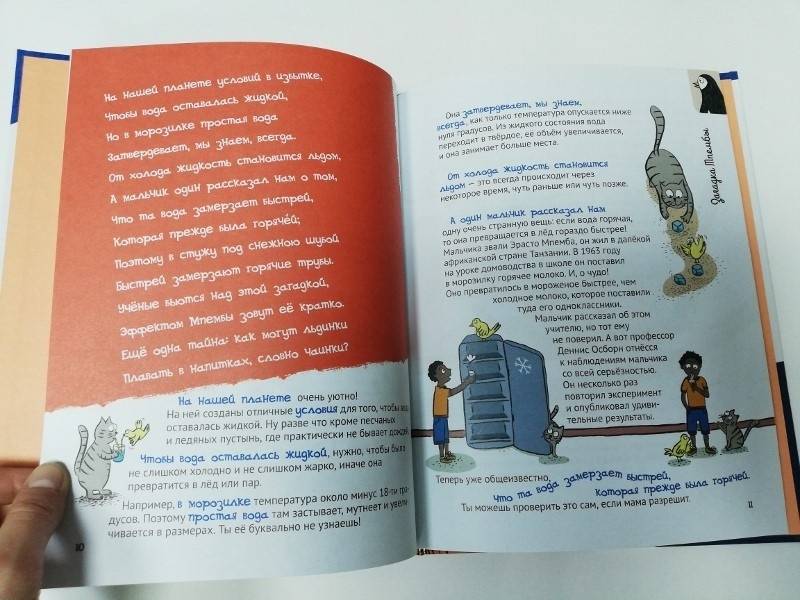 На нашей планете условий в избытке,
Чтобы вода оставалась жидкой,
Но в морозилке простая вода
Затвердевает, мы знаем, всегда.
От холода жидкость становится льдом,
А мальчик один рассказал нам о том,
Что та вода замерзает быстрей,
Которая прежде была горячей;
Поэтому в стужу под снежною шубой
Быстрей замерзают горячие трубы.
Учёные бьются над этой загадкой,
Эффектом Мпембы зовут её кратко.
Ещё одна тайна: как могут льдинки
Плавать в напитках, словно чаинки?
На нашей планете очень уютно!
На ней созданы отличные условия для того, чтобы вода
оставалась жидкой. Ну разве что кроме песчаных
и ледяных пустынь, где практически не бывает дождей.
Чтобы вода оставалась жидкой, нужно, чтобы было
не слишком холодно и не слишком жарко, иначе она
превратится в лёд или пар.
Например, в морозилке температура около минус 18-ти гра-
дусов. Поэтому простая вода там застывает, мутнеет и увели-
чивается в размерах. Ты её буквально не узнаешь!
10
Она затвердевает, мы знаем,
всегда, как только температура опускается ниже
нуля градусов. Из жидкого состояния вода
переходит в твёрдое, её объём увеличивается,
и она занимает больше места.
От холода жидкость становится
льдом – это всегда происходит через
некоторое время, чуть раньше или чуть позже.
А один мальчик рассказал нам
одну очень странную вещь: если вода горячая,
то она превращается в лёд гораздо быстрее!
Мальчика звали Эрасто Мпемба, он жил в далёкой
африканской стране Танзании. В 1963 году
на уроке домоводства в школе он поставил
в морозилку горячее молоко. И, о чудо!
Оно превратилось в мороженое быстрее, чем
холодное молоко, которое поставили
туда его одноклассники.
Мальчик рассказал об этом
учителю, но тот ему
не поверил. А вот профессор
Деннис Осборн отнёсся
к наблюдениям мальчика
со всей серьёзностью.
Он несколько раз
повторил эксперимент
и опубликовал удиви-
тельные результаты.
Теперь уже общеизвестно,
Что та вода замерзает быстрей,
Которая прежде была горячей.
Ты можешь проверить это сам, если мама разрешит.
11
Загадка Мпембы